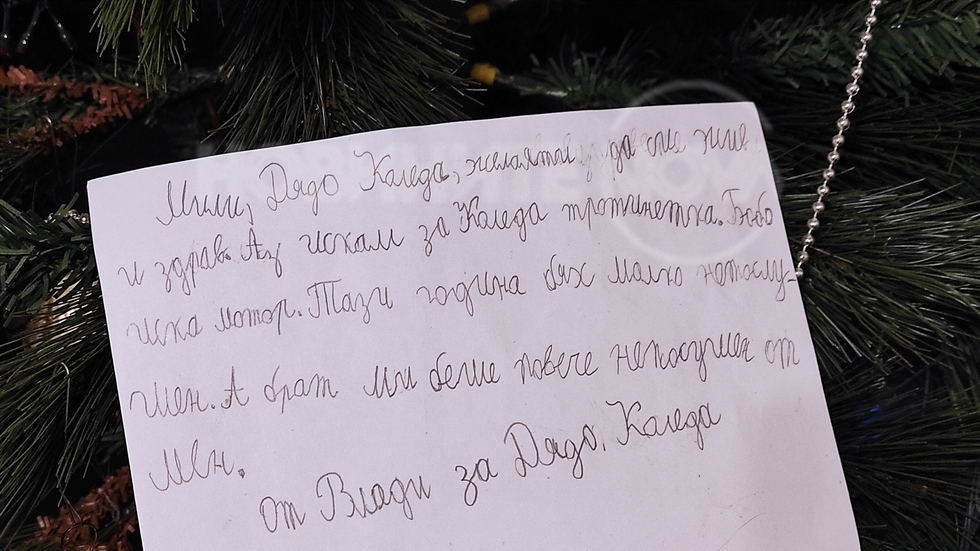 Мили, Дядо Коледа, желаятти да сте жив
и здрав. Аз искам за Коледа тротинетка. Бобо
иска мотор. Тази година бях малко непослу-
шен. А брат ми беше повече непослушен от
мен.
от Влади за Дядо. Коледа